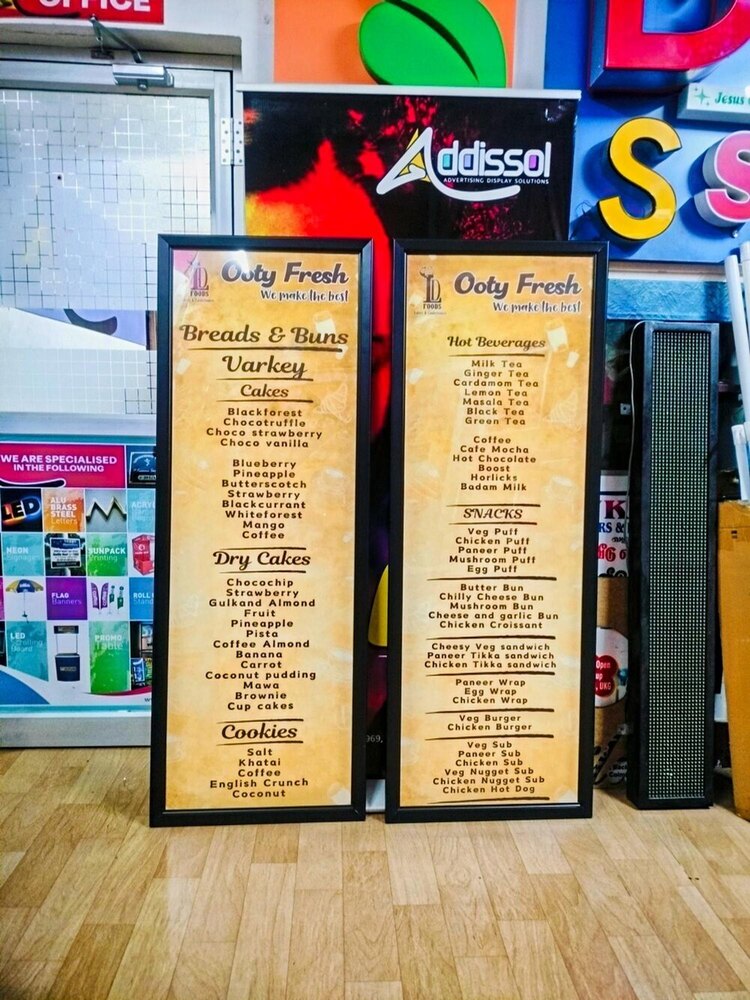 OFFICE
Addissol
ADVERTISING DISPLAY SOLUTIONS
D
Jesus
S
S
WE ARE SPECIALISED
IN THE FOLLOWING
LED
ALU
BRASS
STEEL
Letters
NEON
SUNPACK
Printing
FLAG
Banners
ROLL
Stand
LED
Scrolling
Board
PROMO
Table
FOODS
Ooty Fresh
We make the best
Breads & Buns
Varkey
Cakes
Blackforest
Chocotruffle
Choco strawberry
Choco vanilla
Blueberry
Pineapple
Butterscotch
Strawberry
Blackcurrant
Whiteforest
Mango
Coffee
Dry Cakes
Chocochip
Strawberry
Gulkand Almond
Fruit
Pineapple
Pista
Coffee Almond
Banana
Carrot
Coconut pudding
Mawa
Brownie
Cup cakes
Cookies
Salt
Khatai
Coffee
English Crunch
Coconut
FOODS
Ooty Fresh
We make the best
Hot Beverages
Milk Tea
Ginger Tea
Cardamom Tea
Lemon Tea
Masala Tea
Black Tea
Green Tea
Coffee
Cafe Mocha
Hot Chocolate
Boost
Horlicks
Badam Milk
SNACKS
Veg Puff
Chicken Puff
Paneer Puff
Mushroom Puff
Egg Puff
Butter Bun
Chilly Cheese Bun
Mushroom Bun
Cheese and garlic Bun
Chicken Croissant
Cheesy Veg sandwich
Paneer Tikka sandwich
Chicken Tikka sandwich
Paneer Wrap
Egg Wrap
Chicken Wrap
Veg Burger
Chicken Burger
Veg Sub
Paneer Sub
Chicken Sub
Veg Nugget Sub
Chicken Nugget Sub
Chicken Hot Dog
969,
K
RS &
Open